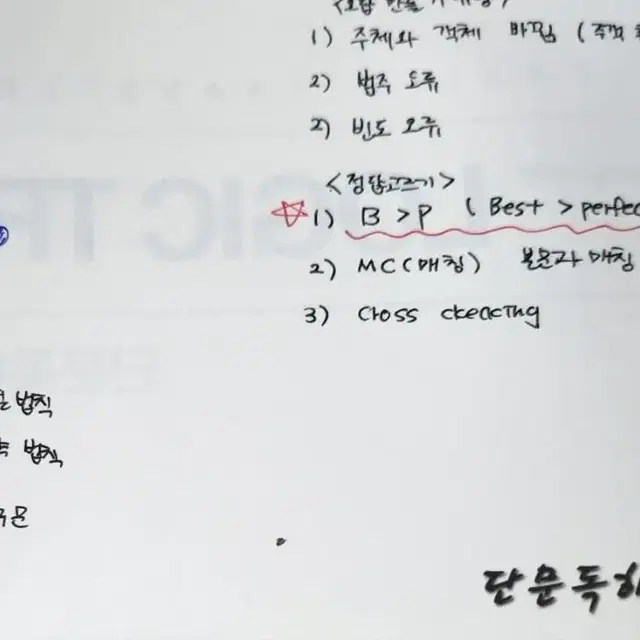 1) 주체와 객체 바뀜 (주객
2) 범주 오류
2) 빈도 오류
<정답고르기>
1) B > P ( Best > perfec
2) MC (매칭) 본문과 매칭
3) Cross
법칙
법칙
문
단문독해